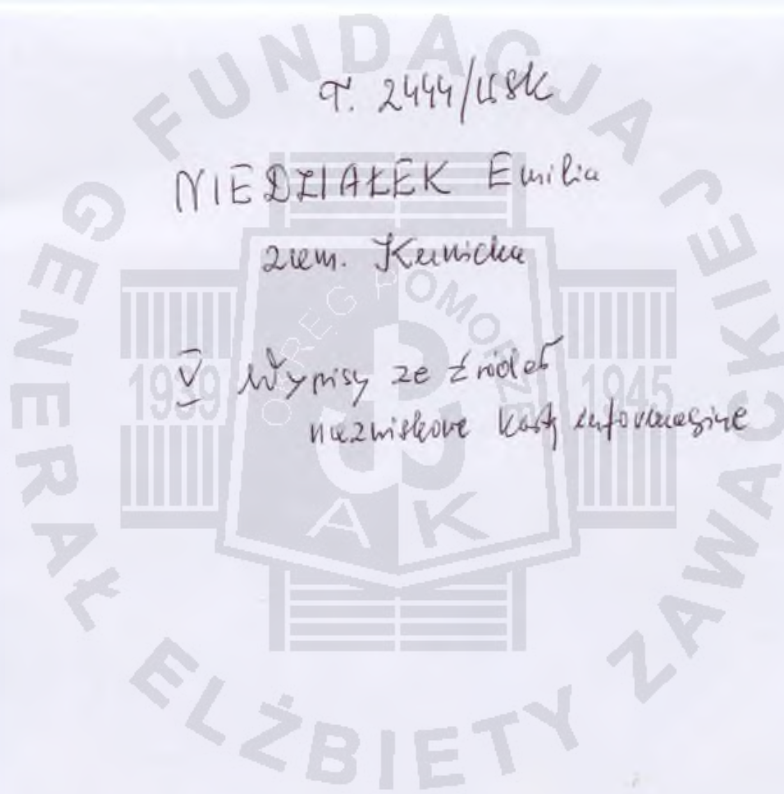 T. 2444/WSK
NIEDZIAŁEK Emilia
zam. Kunicka
V Wypisy ze źródeł
nazwiskowe karty informacyjne
FUNDACJA GENERAŁ ELŻBIETY ZAWACKIEJ
OKRĘG POMORZE
1939
1945
AK